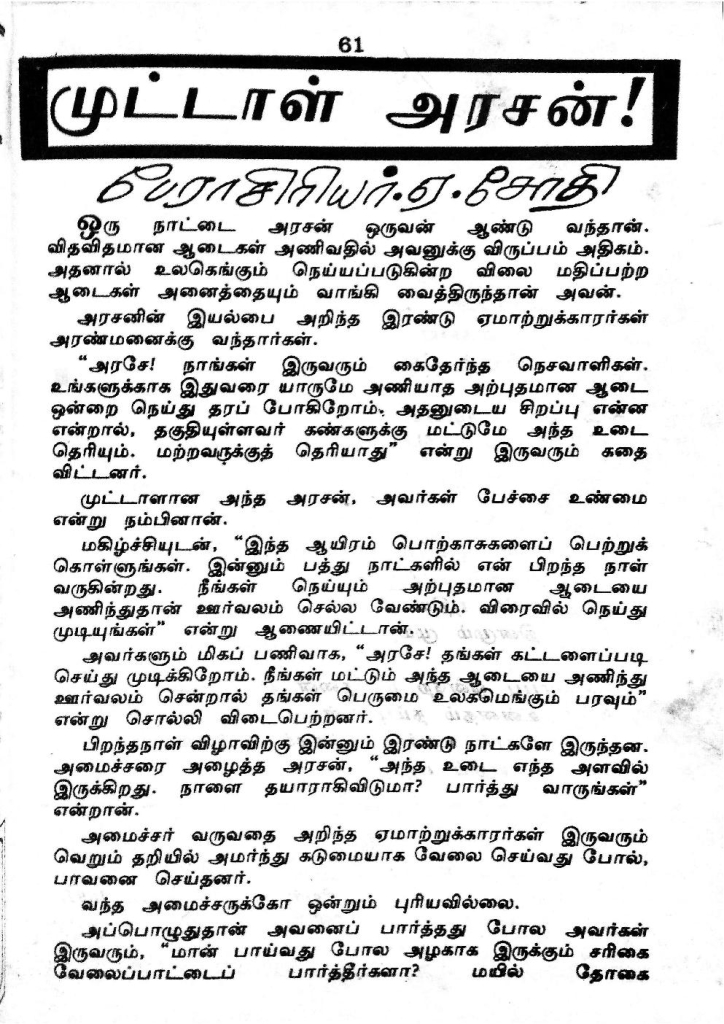 61
முட்டாள் அரசன்!
பேராசிரியர். ஏ. சோதி
ஒரு நாட்டை அரசன் ஒருவன் ஆண்டு வந்தான்.
விதவிதமான ஆடைகள் அணிவதில் அவனுக்கு விருப்பம் அதிகம்.
அதனால் உலகெங்கும் நெய்யப்படுகின்ற விலை மதிப்பற்ற
ஆடைகள் அனைத்தையும் வாங்கி வைத்திருந்தான் அவன்.
அரசனின் இயல்பை அறிந்த இரண்டு ஏமாற்றுக்காரர்கள்
அரண்மனைக்கு வந்தார்கள்.
“அரசே! நாங்கள் இருவரும் கைதேர்ந்த நெசவாளிகள்.
உங்களுக்காக இதுவரை யாருமே அணியாத அற்புதமான ஆடை
ஒன்றை நெய்து தரப் போகிறோம். அதனுடைய சிறப்பு என்ன
என்றால், தகுதியுள்ளவர் கண்களுக்கு மட்டுமே அந்த உடை
தெரியும். மற்றவருக்குத் தெரியாது” என்று இருவரும் கதை
விட்டனர்.
முட்டாளான அந்த அரசன், அவர்கள் பேச்சை உண்மை
என்று நம்பினான்.
மகிழ்ச்சியுடன், “இந்த ஆயிரம் பொற்காசுகளைப் பெற்றுக்
கொள்ளுங்கள். இன்னும் பத்து நாட்களில் என் பிறந்த நாள்
வருகின்றது. நீங்கள் நெய்யும் அற்புதமான ஆடையை
அணிந்துதான் ஊர்வலம் செல்ல வேண்டும். விரைவில் நெய்து
முடியுங்கள்” என்று ஆணையிட்டான்.
அவர்களும் மிகப் பணிவாக, “அரசே! தங்கள் கட்டளைப்படி
செய்து முடிக்கிறோம். நீங்கள் மட்டும் அந்த ஆடையை அணிந்து
ஊர்வலம் சென்றால் தங்கள் பெருமை உலகமெங்கும் பரவும்”
என்று சொல்லி விடைபெற்றனர்.
பிறந்தநாள் விழாவிற்கு இன்னும் இரண்டு நாட்களே இருந்தன.
அமைச்சரை அழைத்த அரசன், “அந்த உடை எந்த அளவில்
இருக்கிறது. நாளை தயாராகிவிடுமா? பார்த்து வாருங்கள்”
என்றான்.
அமைச்சர் வருவதை அறிந்த ஏமாற்றுக்காரர்கள் இருவரும்
வெறும் தறியில் அமர்ந்து கடுமையாக வேலை செய்வது போல்,
பாவனை செய்தனர்.
வந்த அமைச்சருக்கோ ஒன்றும் புரியவில்லை.
அப்பொழுதுதான் அவனைப் பார்த்தது போல அவர்கள்
இருவரும், “மான் பாய்வது போல அழகாக இருக்கும் சரிகை
வேலைப்பாட்டைப் பார்த்தீர்களா? மயில் தோகை